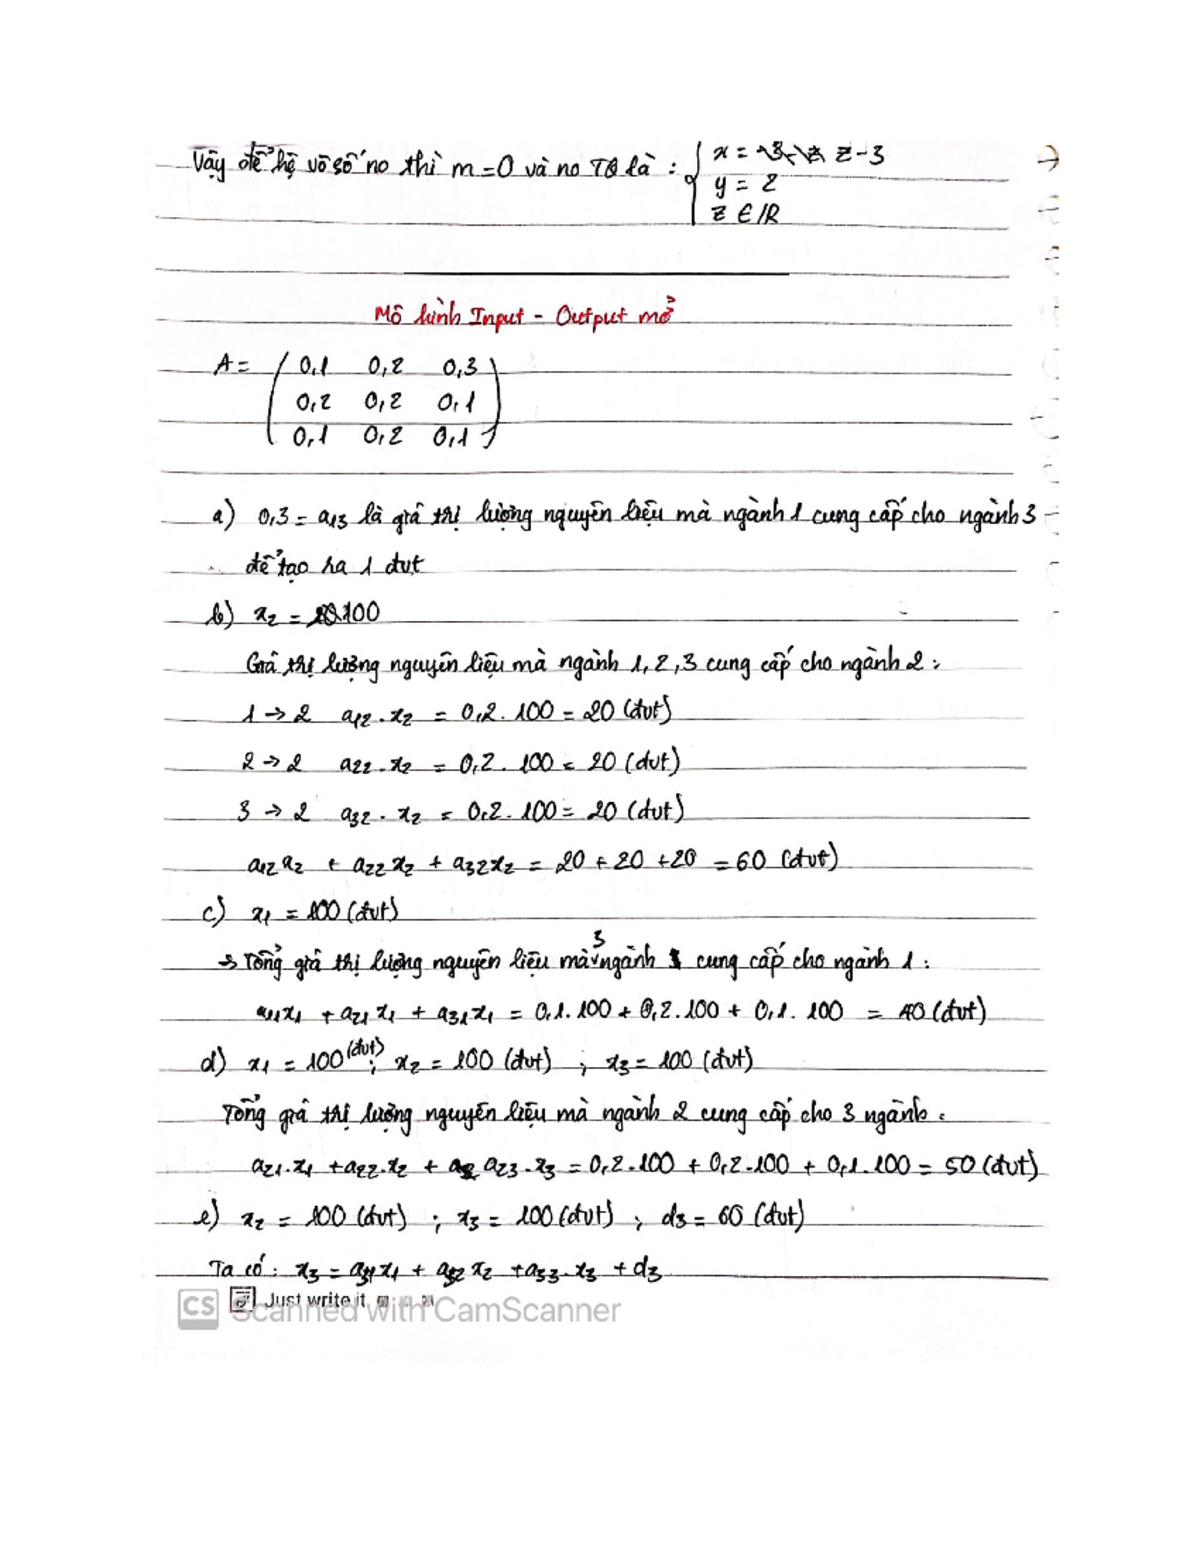 Vậy để hệ vô số no thì m = 0 và no TQ là : { x = z - 3
y = 2
z ∈ /R
Mô hình Input - Output mở
A = ( 0,1 0,2 0,3
0,2 0,2 0,1
0,1 0,2 0,1 )
a) 0,3 = a13 là giá thị lượng nguyên liệu mà ngành 1 cung cấp cho ngành 3
để tạo ra 1 đvt
b) x2 = 100
Giá thị lượng nguyên liệu mà ngành 1, 2, 3 cung cấp cho ngành 2 :
1 → 2 a12 . x2 = 0,2 . 100 = 20 (đvt)
2 → 2 a22 . x2 = 0,2 . 100 = 20 (đvt)
3 → 2 a32 . x2 = 0,2 . 100 = 20 (đvt)
a12 x2 + a22 x2 + a32 x2 = 20 + 20 + 20 = 60 (đvt)
c) x1 = 100 (đvt)
→ Tổng giá thị lượng nguyên liệu mà 3 ngành cung cấp cho ngành 1 :
a11x1 + a21 x1 + a31x1 = 0,1. 100 + 0,2. 100 + 0,1. 100 = 40 (đvt)
d) x1 = 100 (đvt) ; x2 = 100 (đvt) ; x3 = 100 (đvt)
Tổng giá thị lượng nguyên liệu mà ngành 2 cung cấp cho 3 ngành :
a21. x1 + a22. x2 + a23 . x3 = 0,2 . 100 + 0,2 . 100 + 0,1. 100 = 50 (đvt)
e) x2 = 100 (đvt) ; x3 = 100 (đvt) ; d3 = 60 (đvt)
Ta có : x3 = a31x1 + a32 x2 + a33. x3 + d3
Just write it
CS Scanned with CamScanner